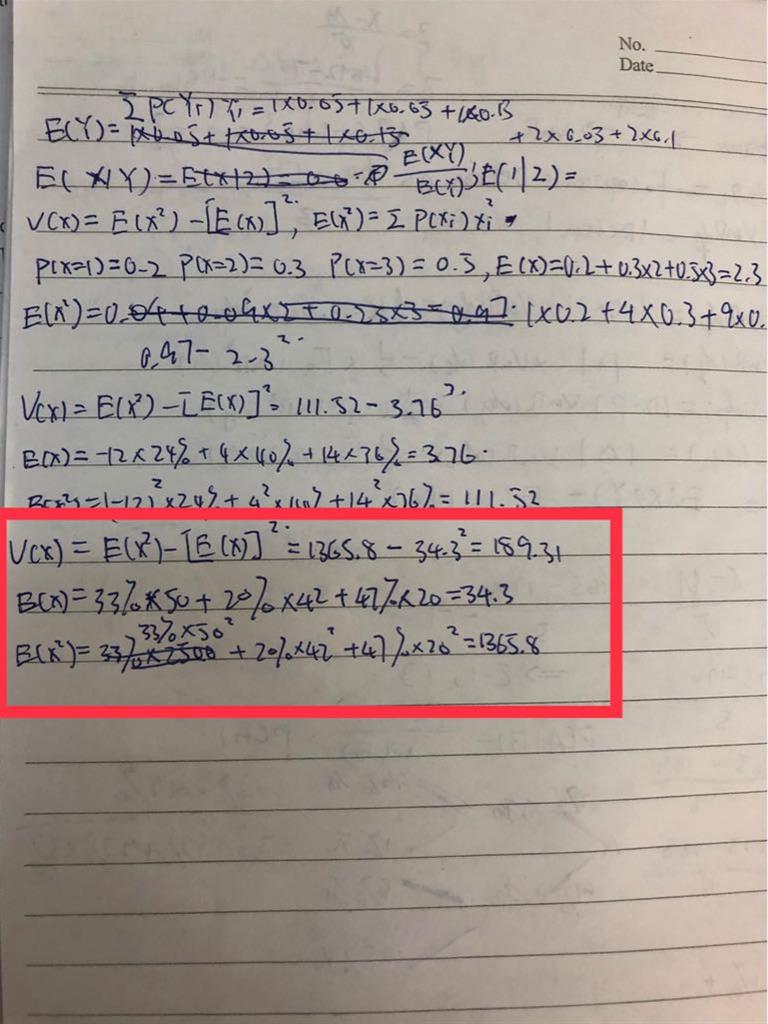 No.
Date
Σ P(Yi) Yi = 1×0.05+1×0.03+1×0.13
E(Y)= 1×0.05+1×0.05+1×0.13 +2×0.03+2×0.1
E(X|Y)=E(X|2)=0.6= E(XY)/E(Y); E(1|2)=
V(x)= E(x²)-[E(x)]², E(x²)=Σ P(xi)xi²
P(x=1)=0.2 P(x=2)=0.3 P(x=3)=0.5, E(x)=0.2+0.3×2+0.5×3=2.3
E(x²)=0.04+0.09×2+0.25×3=0.97. 1×0.2+4×0.3+9×0.
0.97-2.3²
V(x)=E(x²)-[E(x)]²=111.52-3.76²
E(x)=-12×24%+4×40%+14×36%=3.76.
E(x²)=(-12)²×24%+4²×40%+14²×36%=111.52
V(x)=E(x²)-[E(x)]²=1365.8-34.3²=189.31
E(x)=33%×50+20%×42+47%×20=34.3
33%×50²
E(x²)=33%×2500+20%×42²+47%×20²=1365.8